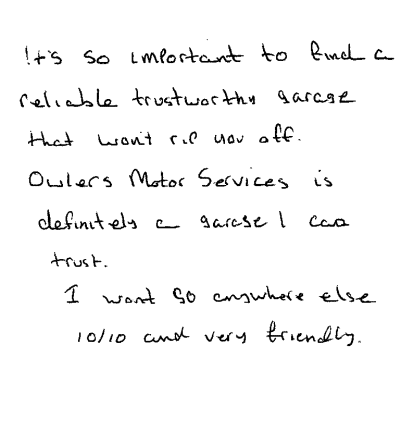 It's so important to find a
reliable trustworthy garage
that won't rip you off.
Owlers Motor Services is
definitely a garage I can
trust.
I wont go anywhere else
10/10 and very friendly.